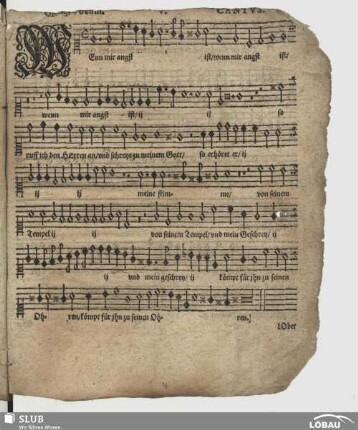 CANTVS.
WEnn mir angst ist/wenn mir angst ist/
wenn mir angst ist/ ij ij so
ruff ich den HErren an/vnd schreye zu meinem Gott/ so erhöret er/ ij
ij ij meine stim- me/ von seinem
Tempel ij ij von seinem Tempel/ vnd mein Geschrey/ ij
ij vnd mein geschrey/ ij kömpt für jhn zu seinen
Oh- ren/kömpt für jhn zu seinen Oh- ren.
SLUB
Wir führen Wissen.
LÖBAU